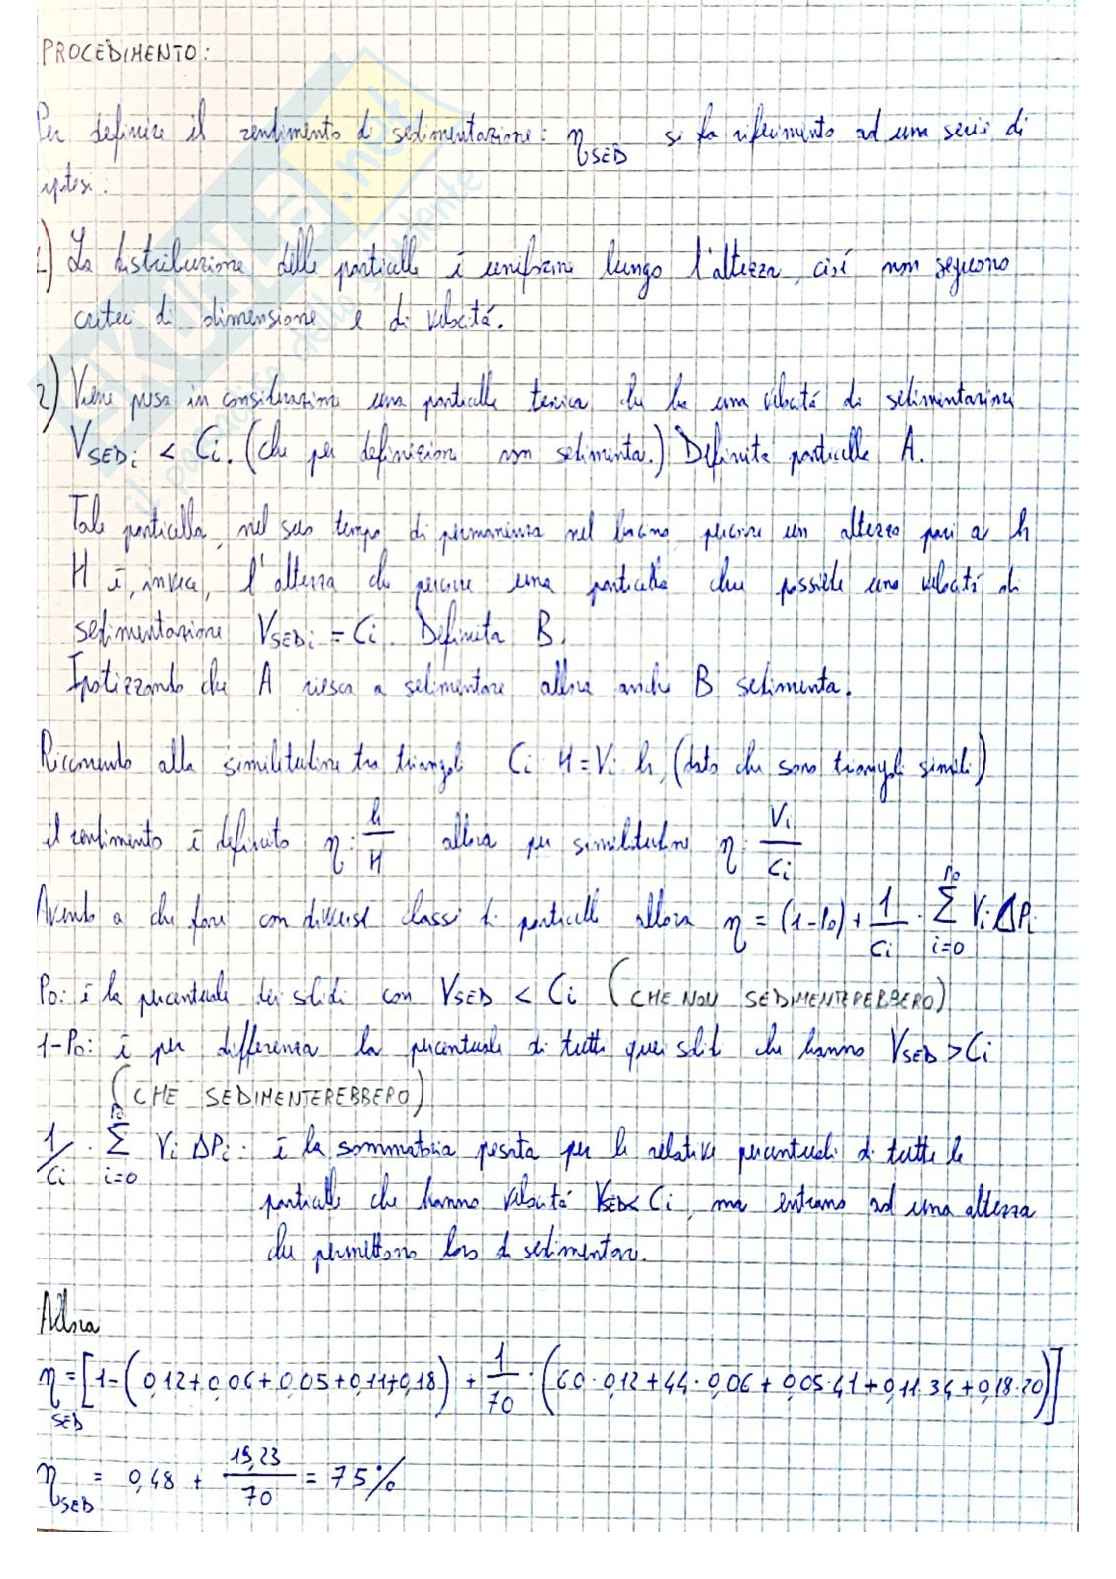 PROCEDIMENTO:
Per definire il rendimento di sedimentazione: η SED si fa riferimento ad una serie di
ipotesi:
1) La distribuzione delle particelle è uniforme lungo l'altezza, cioè non seguono
criteri di dimensione e di velocità.
2) Viene presa in considerazione una particella che ha una velocità di sedimentazione
VSEDi < Ci. (che per definizione non sedimenta.) Definita particella A.
Tale particella, nel suo tempo di permanenza nel bacino percorre un altezza pari a h
H è, invece, l'altezza che percorre una particella che possiede una velocità di
sedimentazione VSEDi = Ci. Definita B.
Ipotizzando che A riesca a sedimentare allora anche B sedimenta.
Ricorrendo alla similitudine tra triangoli Ci H = Vi h, (dato che sono triangoli simili)
il rendimento è definito η: h/H allora per similitudine η: Vi/Ci
Avendo a che fare con diverse classi di particelle allora η = (1-P0) + 1/Ci · Σ i=0 P0 Vi ΔPi
P0: è la percentuale dei solidi con VSED < Ci (CHE NON SEDIMENTEREBBERO)
1-P0: è per differenza la percentuale di tutti quei solidi che hanno VSED > Ci
(CHE SEDIMENTEREBBERO)
1/Ci · Σ i=0 P0 Vi ΔPi: è la sommatoria pesata per le relative percentuali di tutte le
particelle che hanno velocità VSED < Ci, ma entrano ad una altezza
che permettono loro di sedimentare.
Allora
η SED = [1-(0,12+0,06+0,05+0,11+0,18) + 1/70 · (60·0,12+44·0,06+0,05·41+0,11·34+0,18·20)]
η SED = 0,48 + 19,23/70 = 75%